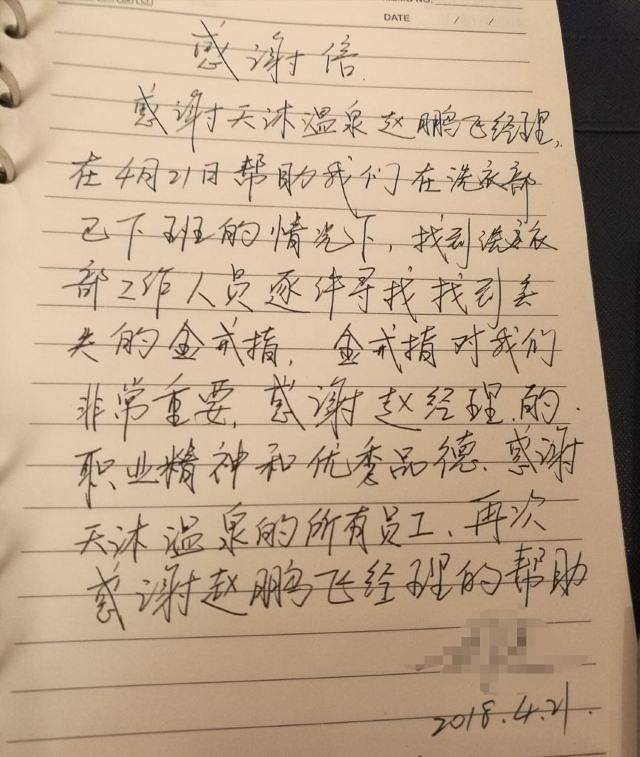 DATE / /
感谢信
感谢天沐温泉赵鹏飞经理,
在4月21日帮助我们在洗衣部
已下班的情况下,找到洗衣
部工作人员逐件寻找找到丢
失的金戒指,金戒指对我们
非常重要,感谢赵经理的
职业精神和优秀品德、感谢
天沐温泉的所有员工、再次
感谢赵鹏飞经理的帮助
2018.4.21.